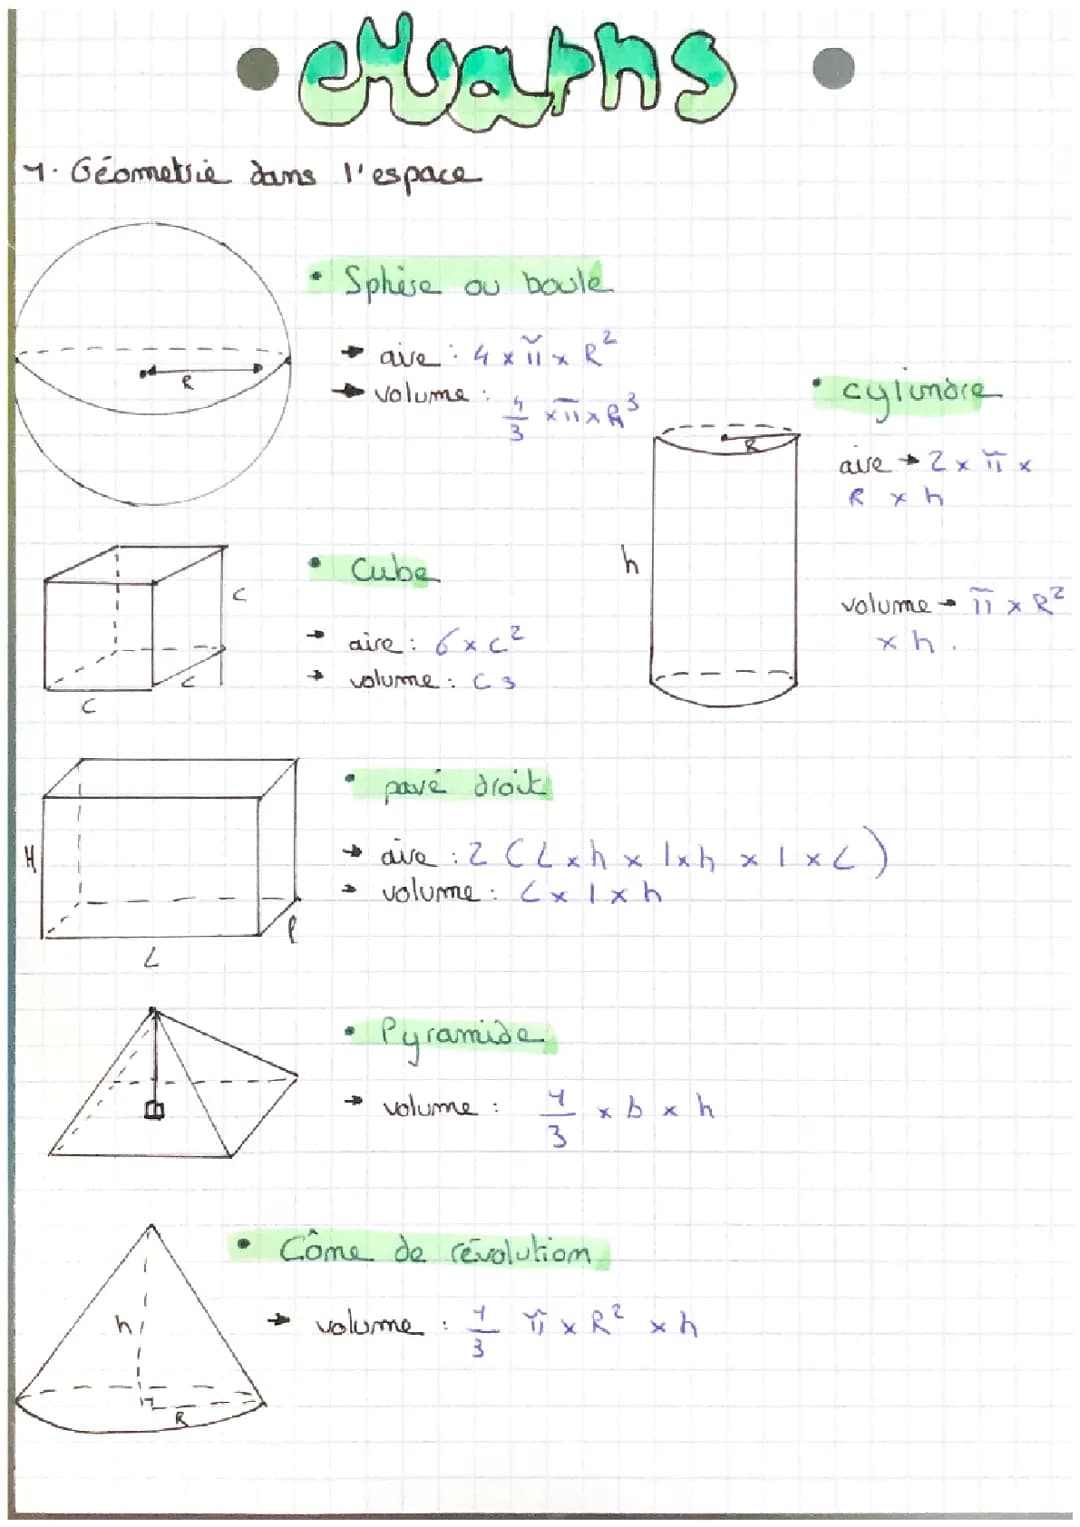 Maths
1. Géometrie dans l'espace
• Sphère ou boule
→ aire : 4 x π x R²
→ volume : 4/3 x π x R³
R
• cylindre
aire → 2 x π x
R x h
volume → π x R²
x h.
R
h
• Cube
→ aire : 6 x c²
→ volume : c3
c
c
c
• pavé droit
→ aire : 2 (L x h x l x h x l x L)
→ volume : L x l x h
H
l
L
• Pyramide
→ volume : 1/3 x b x h
• Cône de révolution
→ volume : 1/3 π x R² x h
h
R